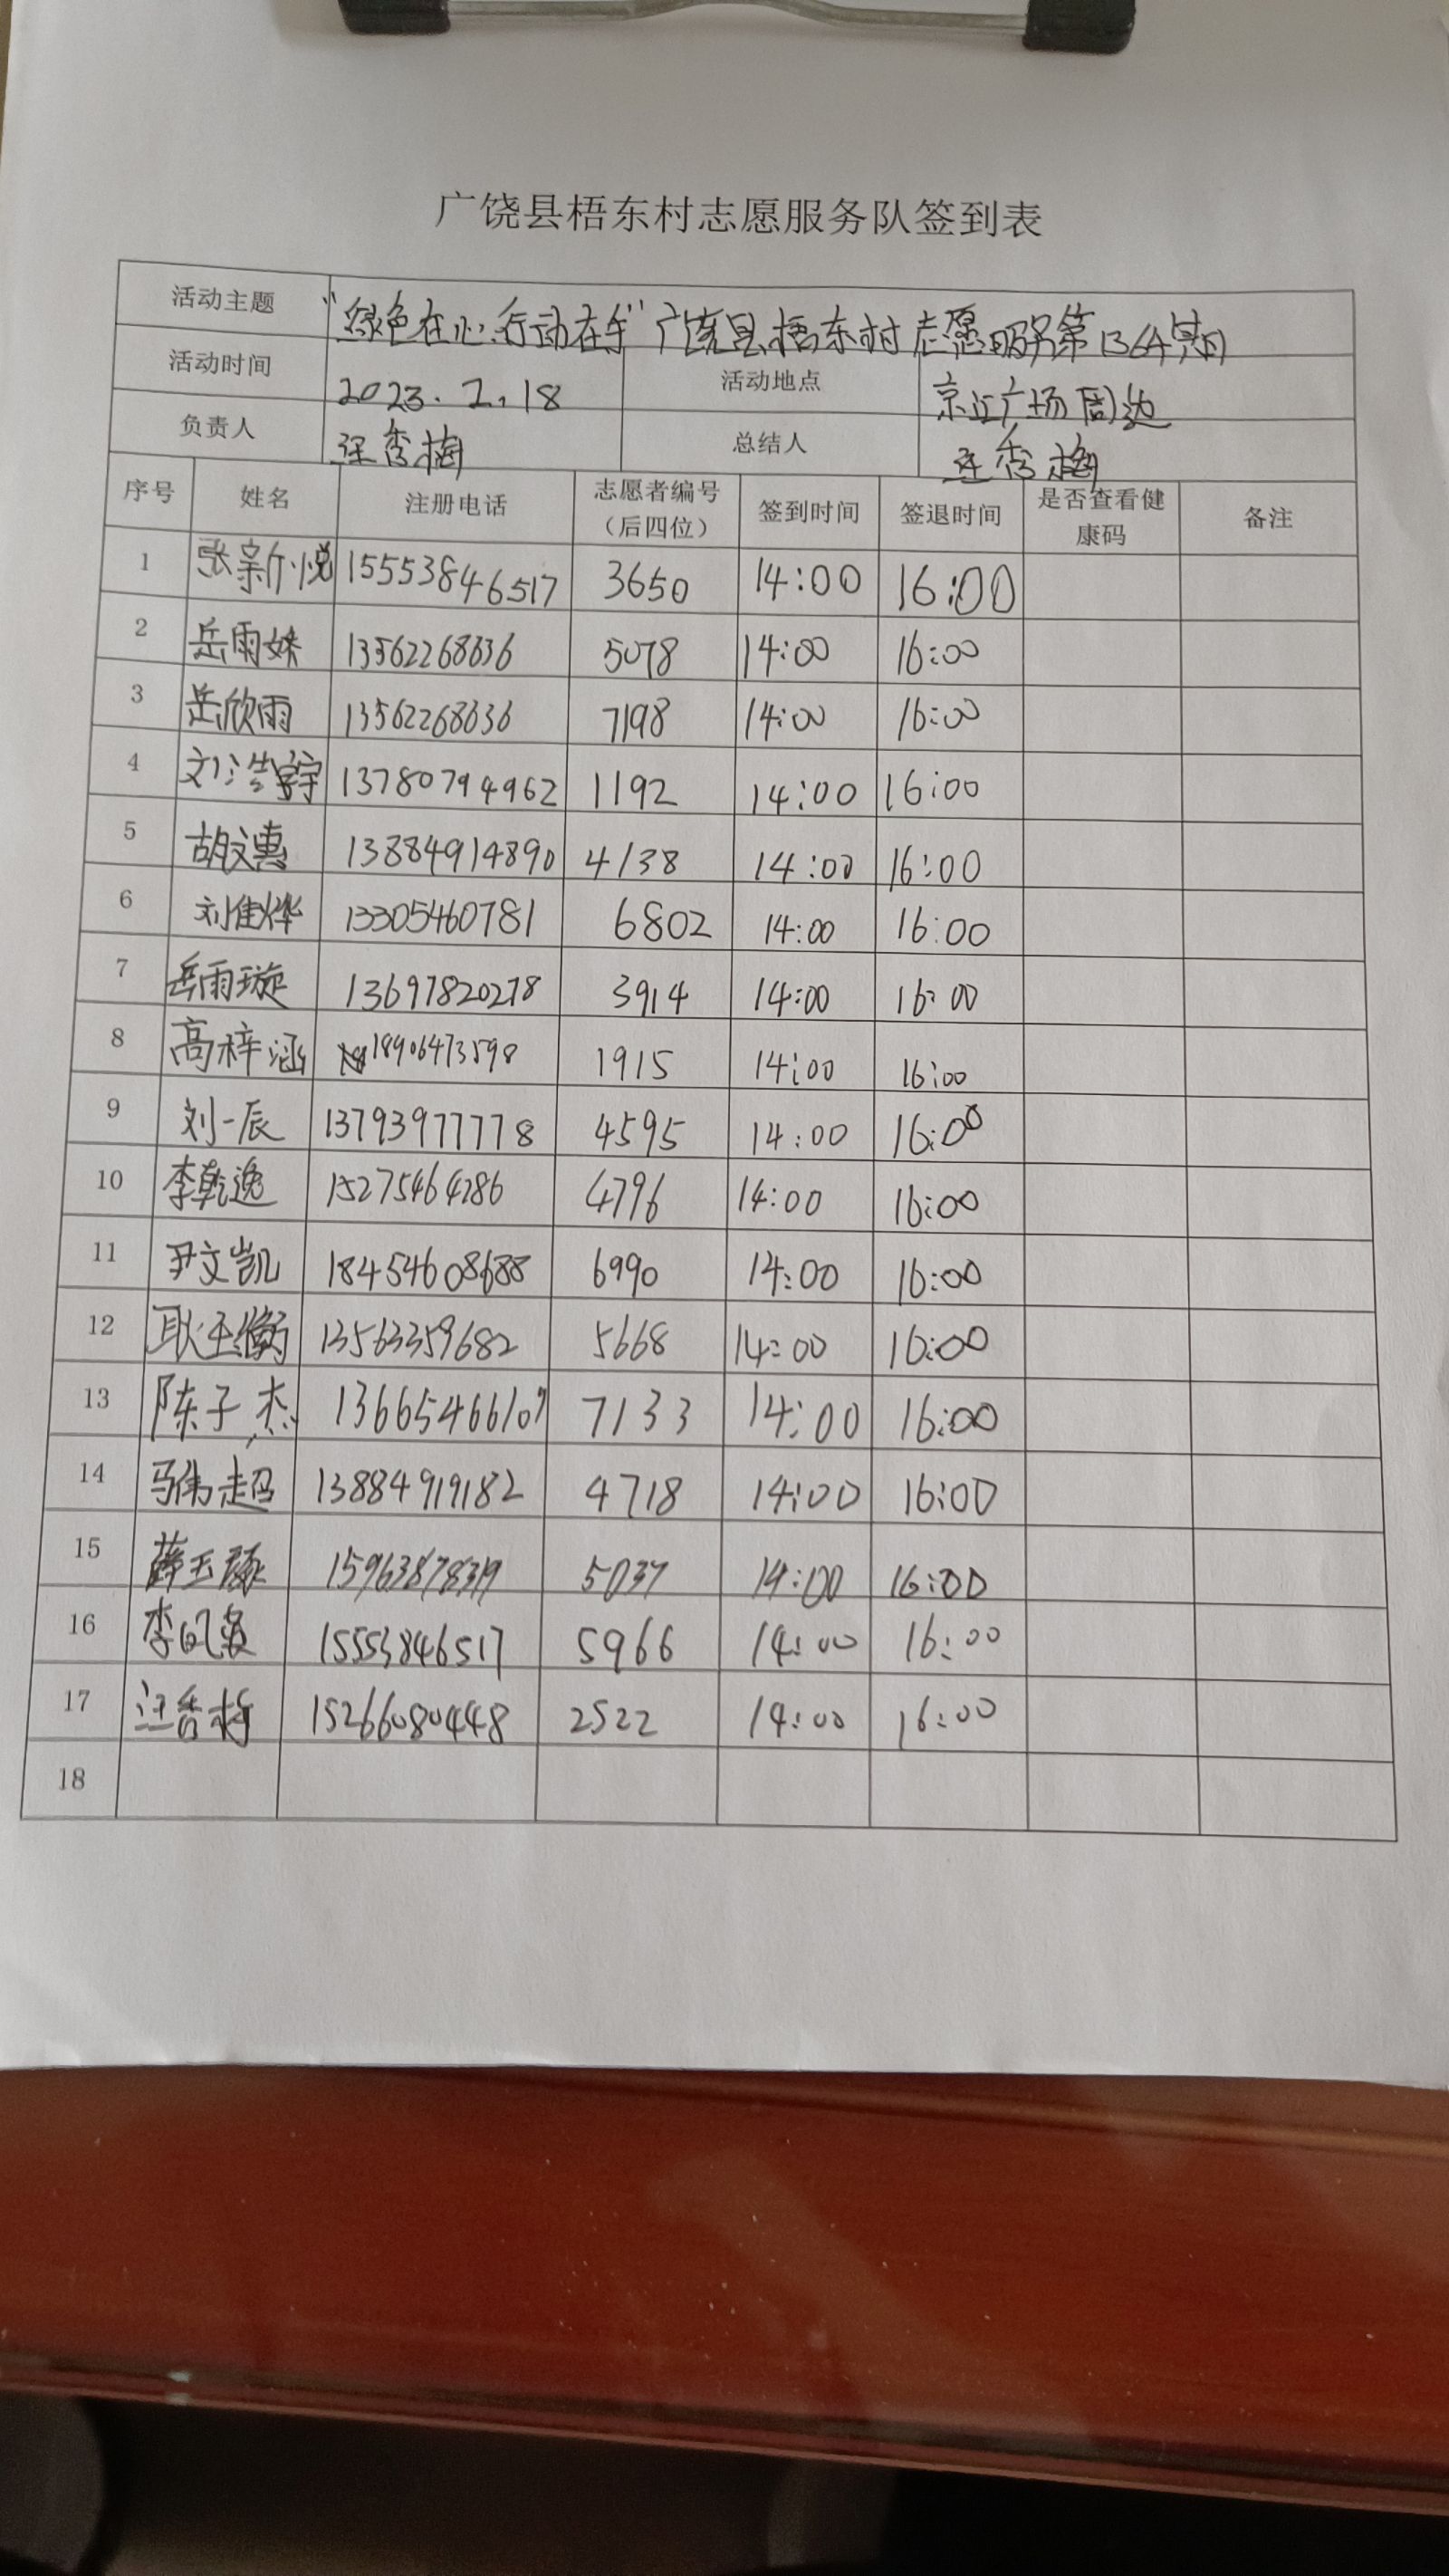 广饶县梧东村志愿服务队签到表
活动主题 “绿色在心行动在手”广饶县梧东村志愿服务第1364期
活动时间 2023.2.18 活动地点 京汇广场周边
负责人 汪香梅 总结人 汪香梅
序号 姓名 注册电话 志愿者编号（后四位） 签到时间 签退时间 是否查看健康码 备注
1 张新悦 15553846517 3650 14:00 16:00
2 岳雨姝 13562268636 5078 14:00 16:00
3 岳欣雨 13562268636 7198 14:00 16:00
4 刘浩宇 13780794962 1192 14:00 16:00
5 胡文惠 13884914890 4138 14:00 16:00
6 刘佳烨 13305460781 6802 14:00 16:00
7 岳雨璇 13697820278 3914 14:00 16:00
8 高梓涵 18906473598 1915 14:00 16:00
9 刘一辰 13793977778 4595 14:00 16:00
10 李乾逸 15275464286 4796 14:00 16:00
11 尹文凯 18454608688 6990 14:00 16:00
12 耿玉衡 13563359682 5668 14:00 16:00
13 陈子杰 13665466107 7133 14:00 16:00
14 马伟超 13884919182 4718 14:00 16:00
15 薛玉 15963878319 5037 14:00 16:00
16 李 15553846517 5966 14:00 16:00
17 汪香梅 15266080448 2522 14:00 16:00
18